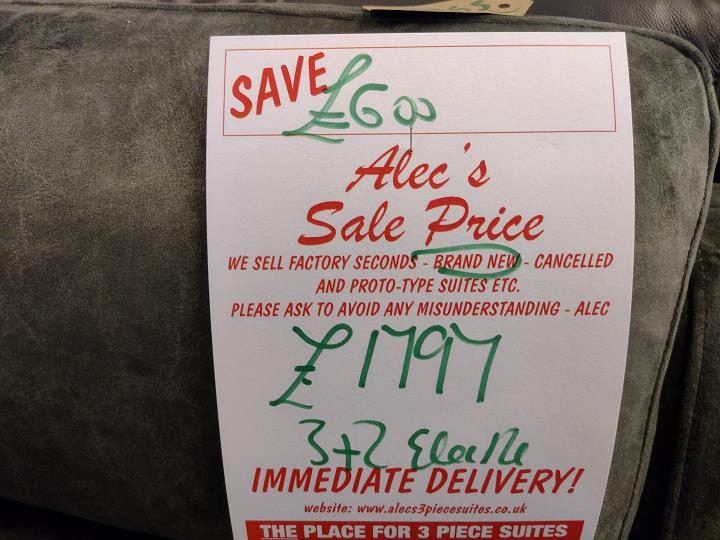 SAVE £600
Alec's
Sale Price
WE SELL FACTORY SECONDS - BRAND NEW - CANCELLED
AND PROTO-TYPE SUITES ETC.
PLEASE ASK TO AVOID ANY MISUNDERSTANDING - ALEC
£1797
3+2
IMMEDIATE DELIVERY!
website: www.alecs3piecesuites.co.uk
THE PLACE FOR 3 PIECE SUITES